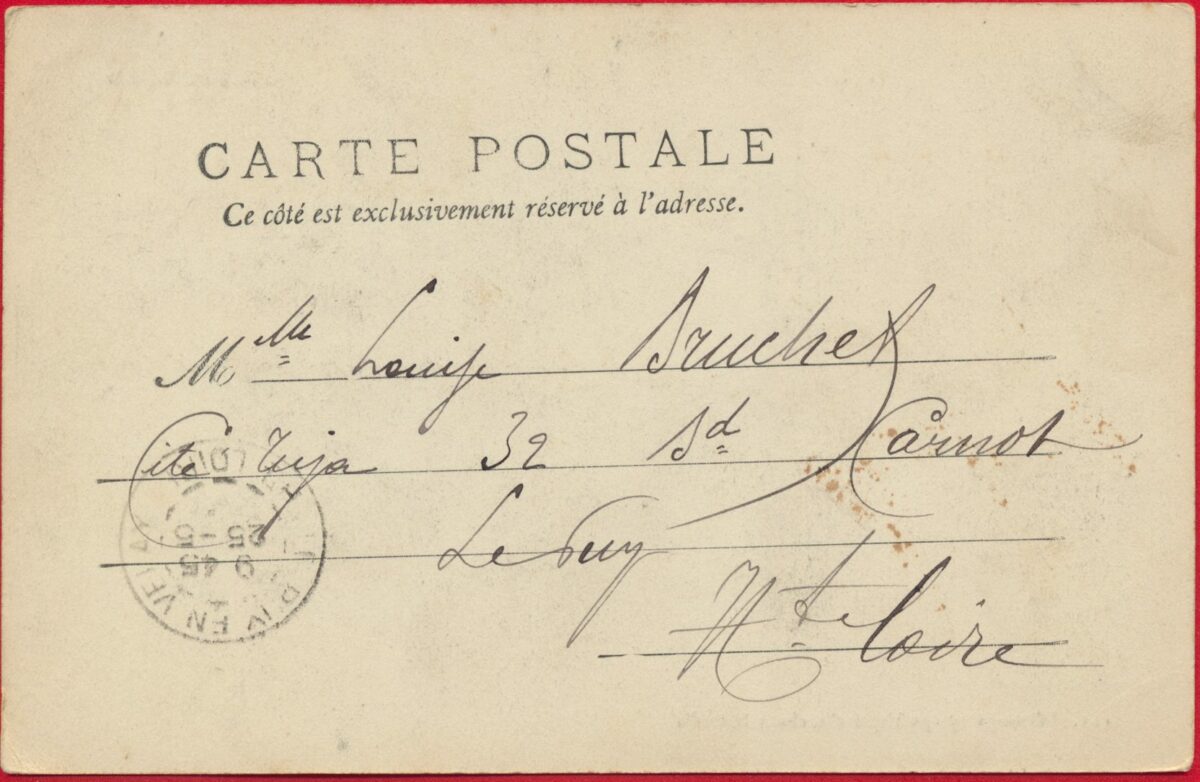 CARTE POSTALE
Ce côté est exclusivement réservé à l'adresse.
Mlle Louise Bruchet
Cité 32 Bd Carnot
Le Puy
Hte Loire
9 45
25 -5
EN VELAY